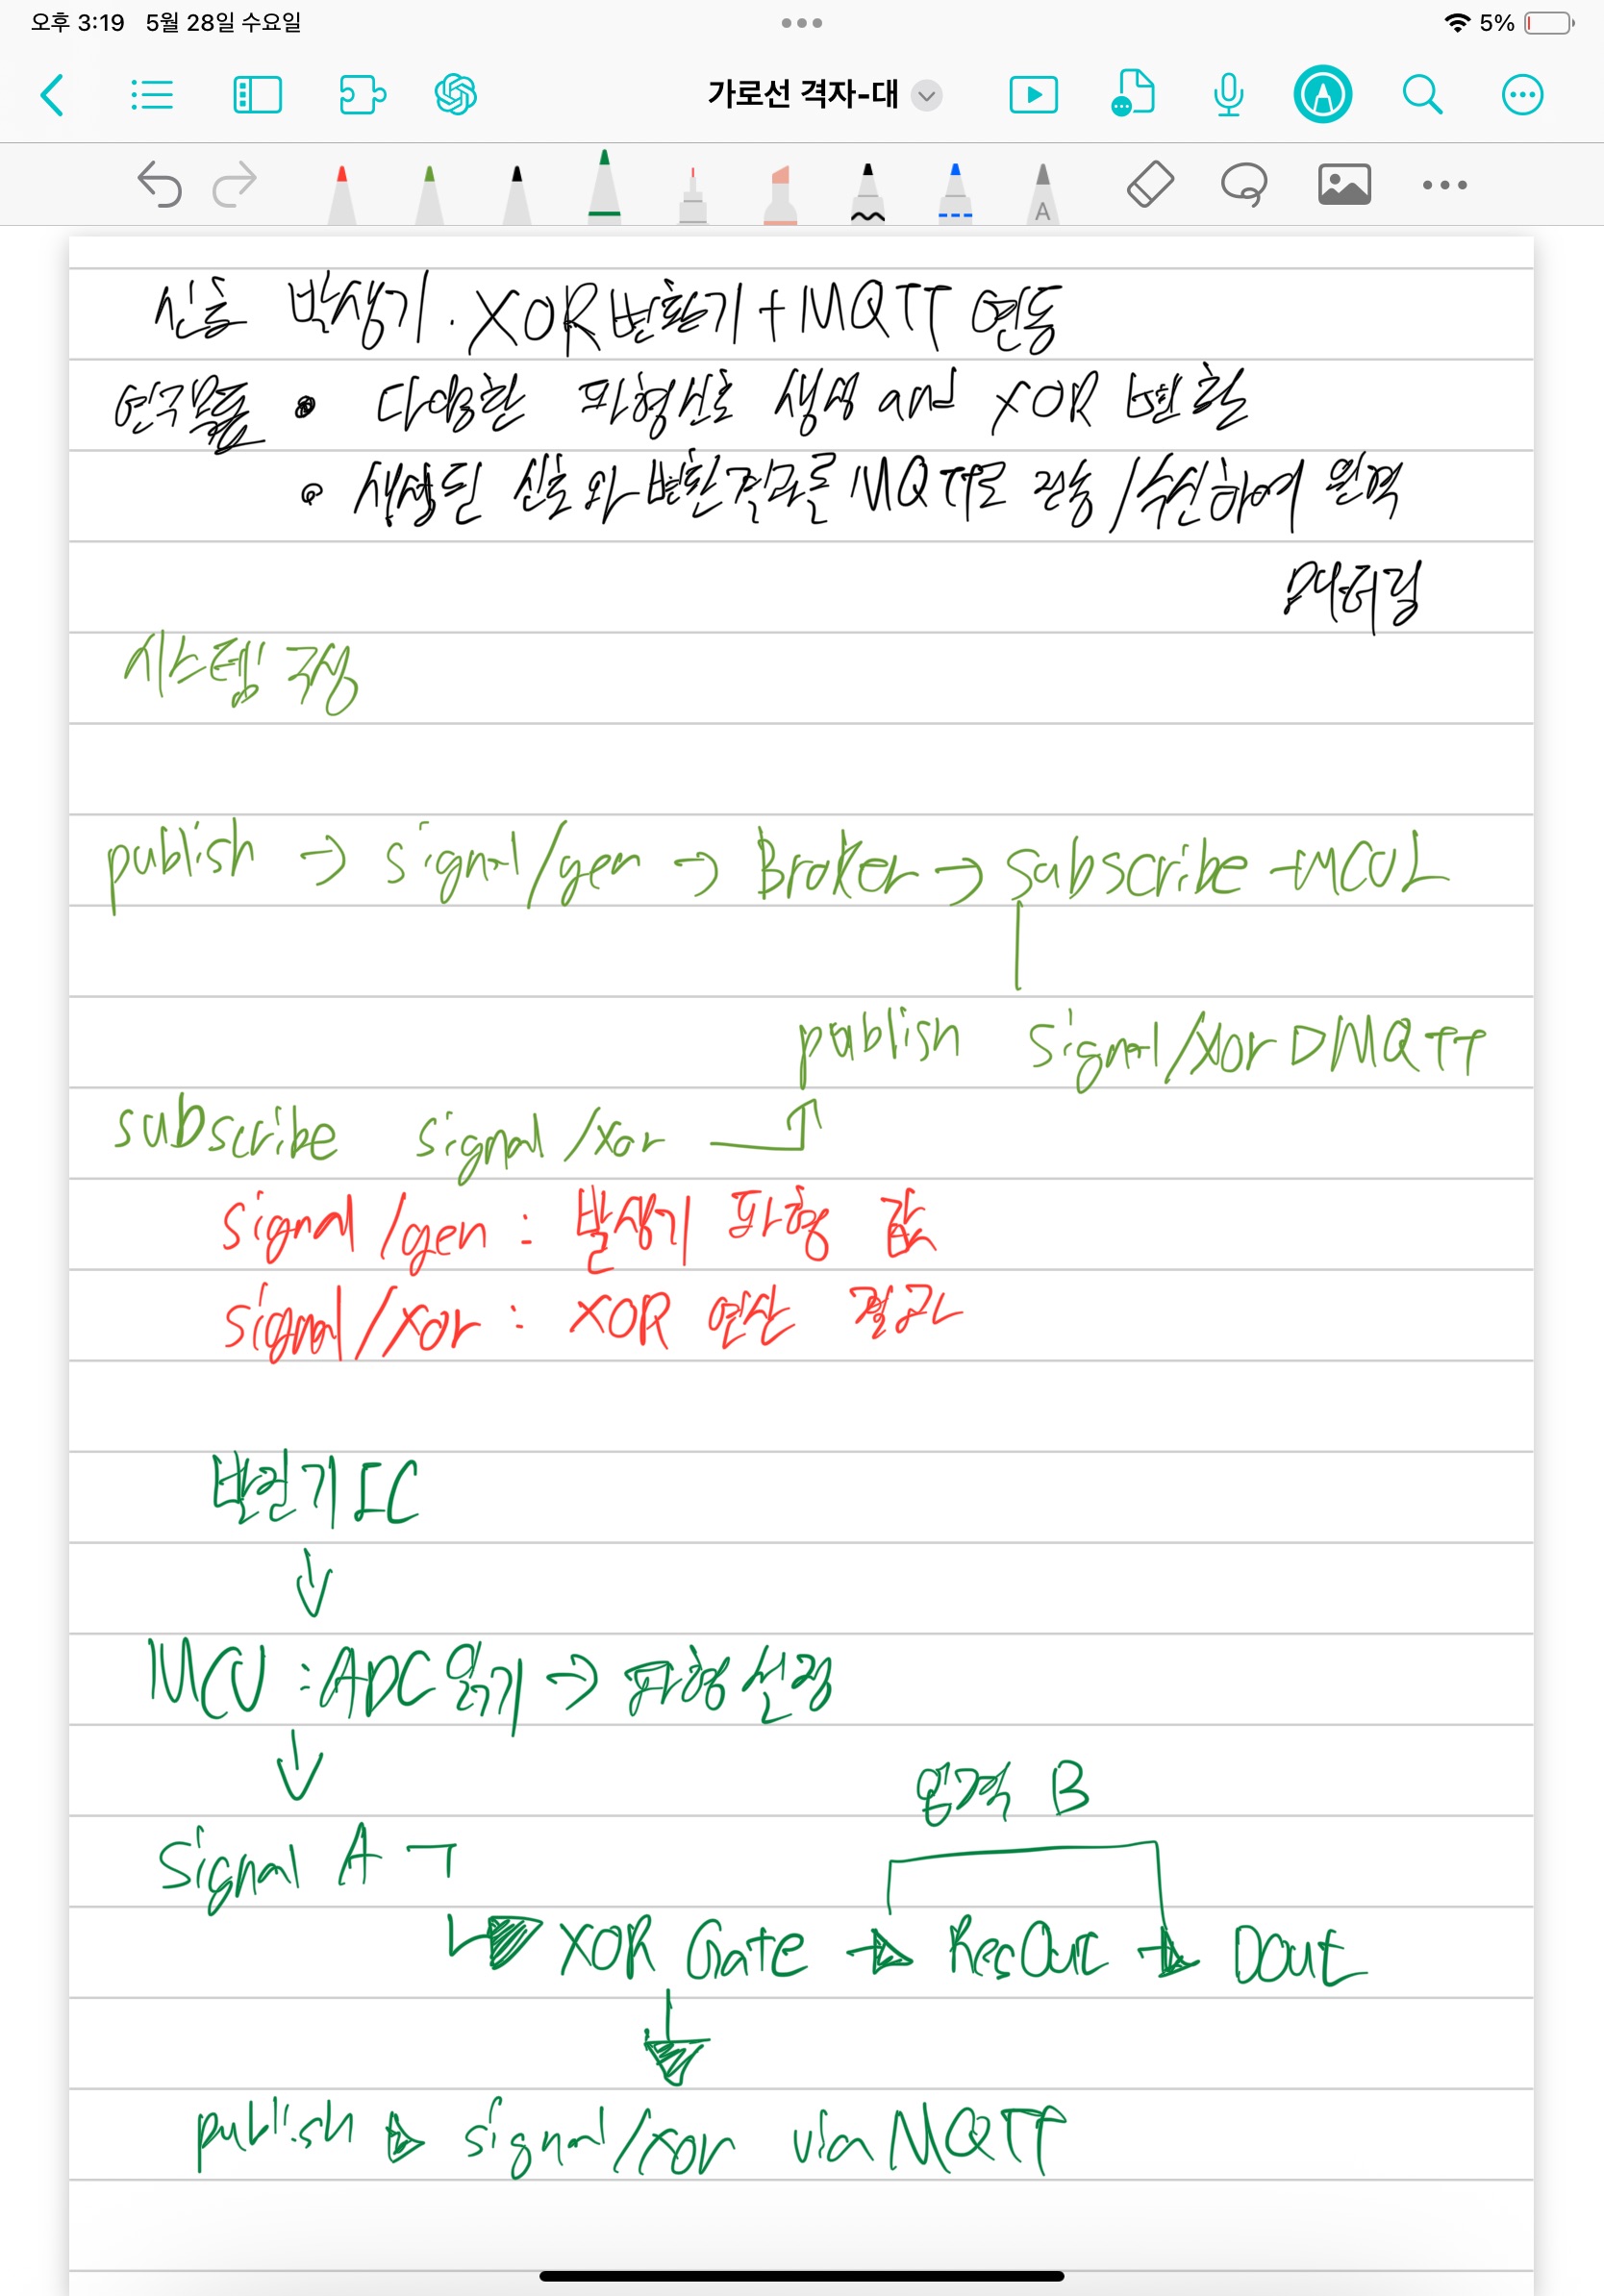 오후 3:19 5월 28일 수요일
5%
가로선 격자-대
신호 발생기. XOR변환기+MQTT 연동
연구목표 • 다양한 파형신호 생성 and XOR 변환
• 생성된 신호와 변환결과를 MQTT로 전송/수신하여 원격
시스템 구성
publish → signal/gen → Broker → subscribe -MCU
publish signal/xor MQTT
subscribe signal/xor
signal/gen : 발생기 파형 값
signal/xor : XOR 연산 결과
IC
↓
MCU : ADC 읽기 → 파형 선정
↓
입력 B
Signal A
XOR Gate → RecOut → DOut
publish → signal/xor via MQTT